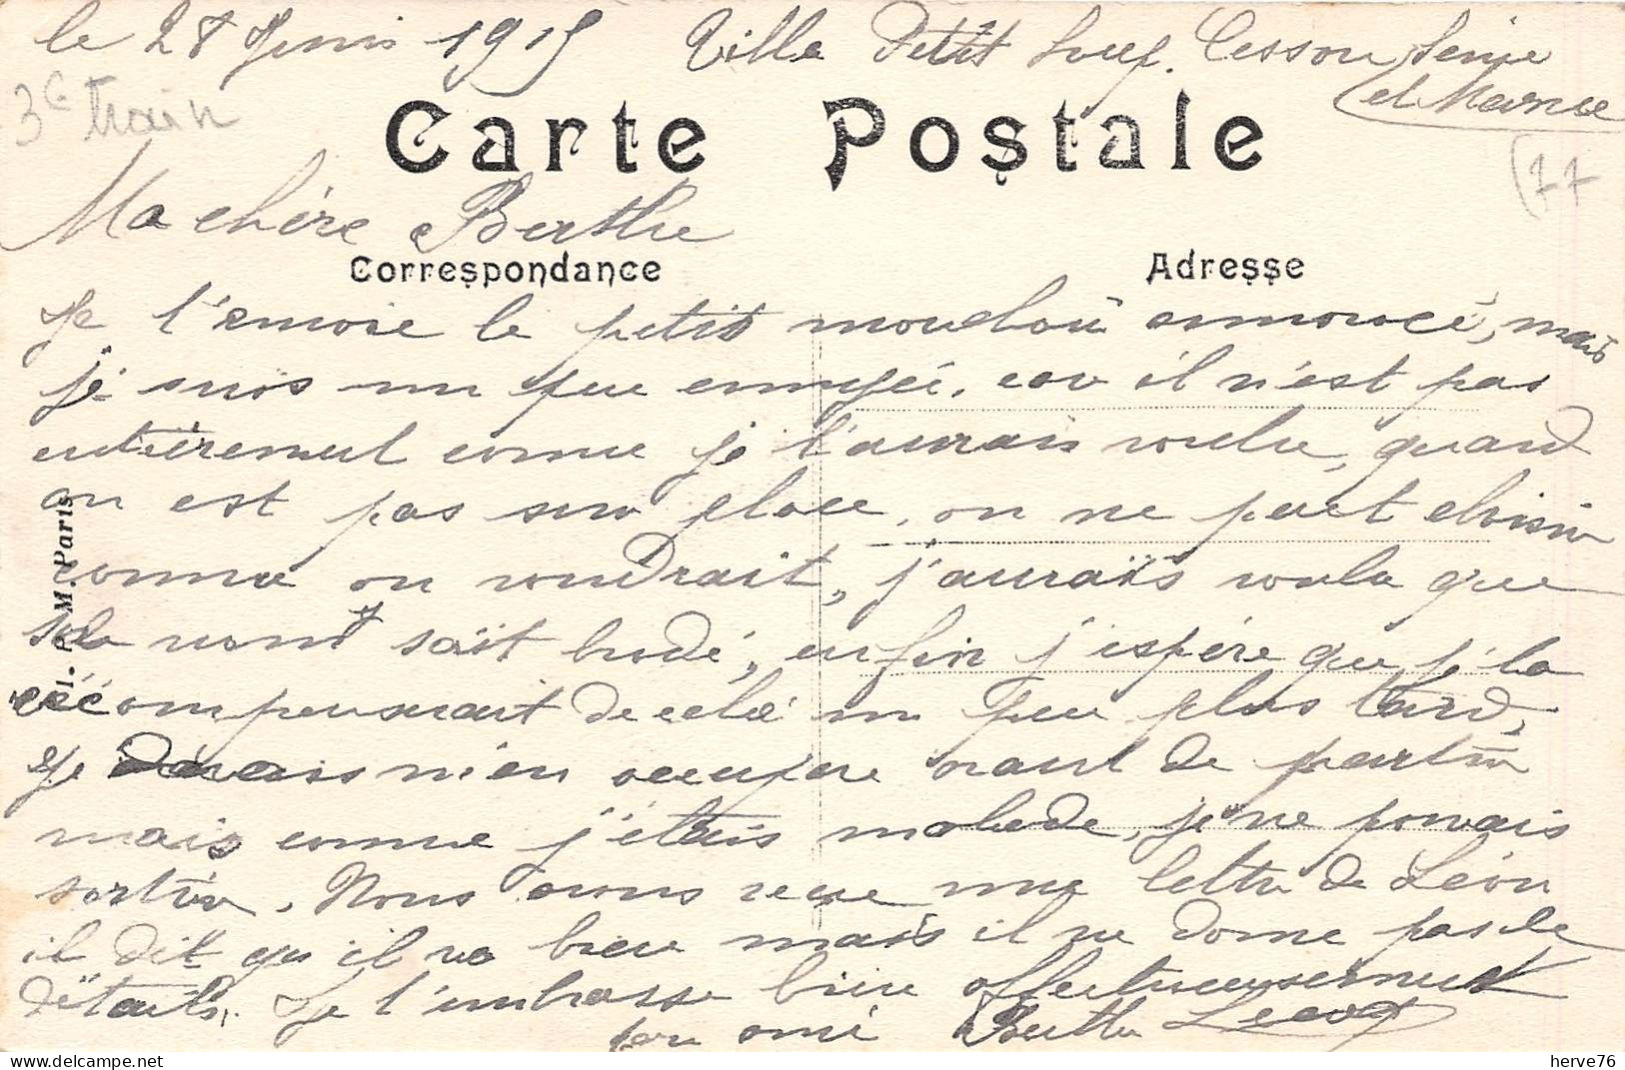 le 28 Juin 1915 Villa Petit Cesson Seine
et Marne
3e train
(77
Carte Postale
Ma chère Berthe
Correspondance
Adresse
Je t'envoie le petit mouchoir annoncé, mais
je suis un peu ennuyée, car il n'est pas
entièrement comme je l'aurais voulu, quand
on est pas sur place, on ne peut choisir
comme on voudrait, j'aurais voulu que
sait brodé, enfin j'espére que je la
récompenserait de cela un peu plus tard,
Je devais m'en occuper avant de partir
mais comme j'étais malade, je ne pouvais
sortir. Nous avons reçue une lettre de Léon
il dit qu'il va bien mais il ne donne pas de
détails. Je t'embrasse bien affectueusement
Ton amie Berthe
I. P. M. Paris
herve76